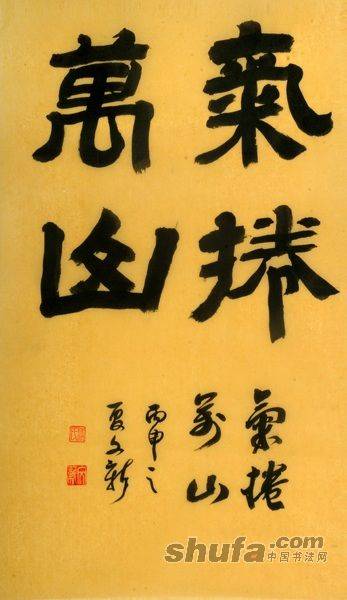 氣捲
萬山
氣捲
萬山
丙申之
夏文新
shufa.com
中国书法网